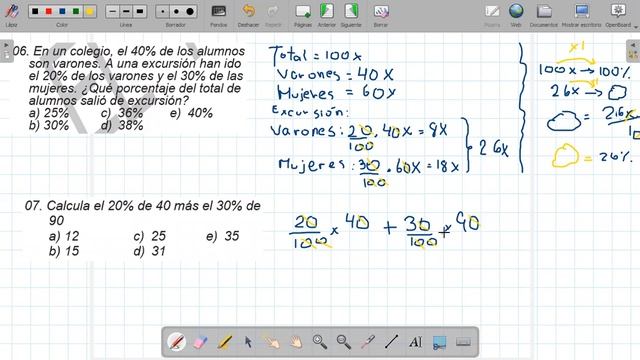 Lápiz
Color
Línea
Borrador
Fondos
Deshacer
Rehacer
Página
Anterior
Siguiente
Borrar
Documentos
Mostrar escritorio
OpenBoard
06. En un colegio, el 40% de los alumnos
son varones. A una excursión han ido
el 20% de los varones y el 30% de las
mujeres. ¿Qué porcentaje del total de
alumnos salió de excursión?
a) 25% c) 36% e) 40%
b) 30% d) 38%
Total = 100x
Varones = 40x
Mujeres = 60x
Excursión:
Varones: 20/100 . 40x = 8x
Mujeres: 30/100 . 60x = 18x
26x
x1
100x → 100%
26x →
= 26%
07. Calcula el 20% de 40 más el 30% de
90
a) 12 c) 25 e) 35
b) 15 d) 31
20/100 x 40 + 30/100 x 90